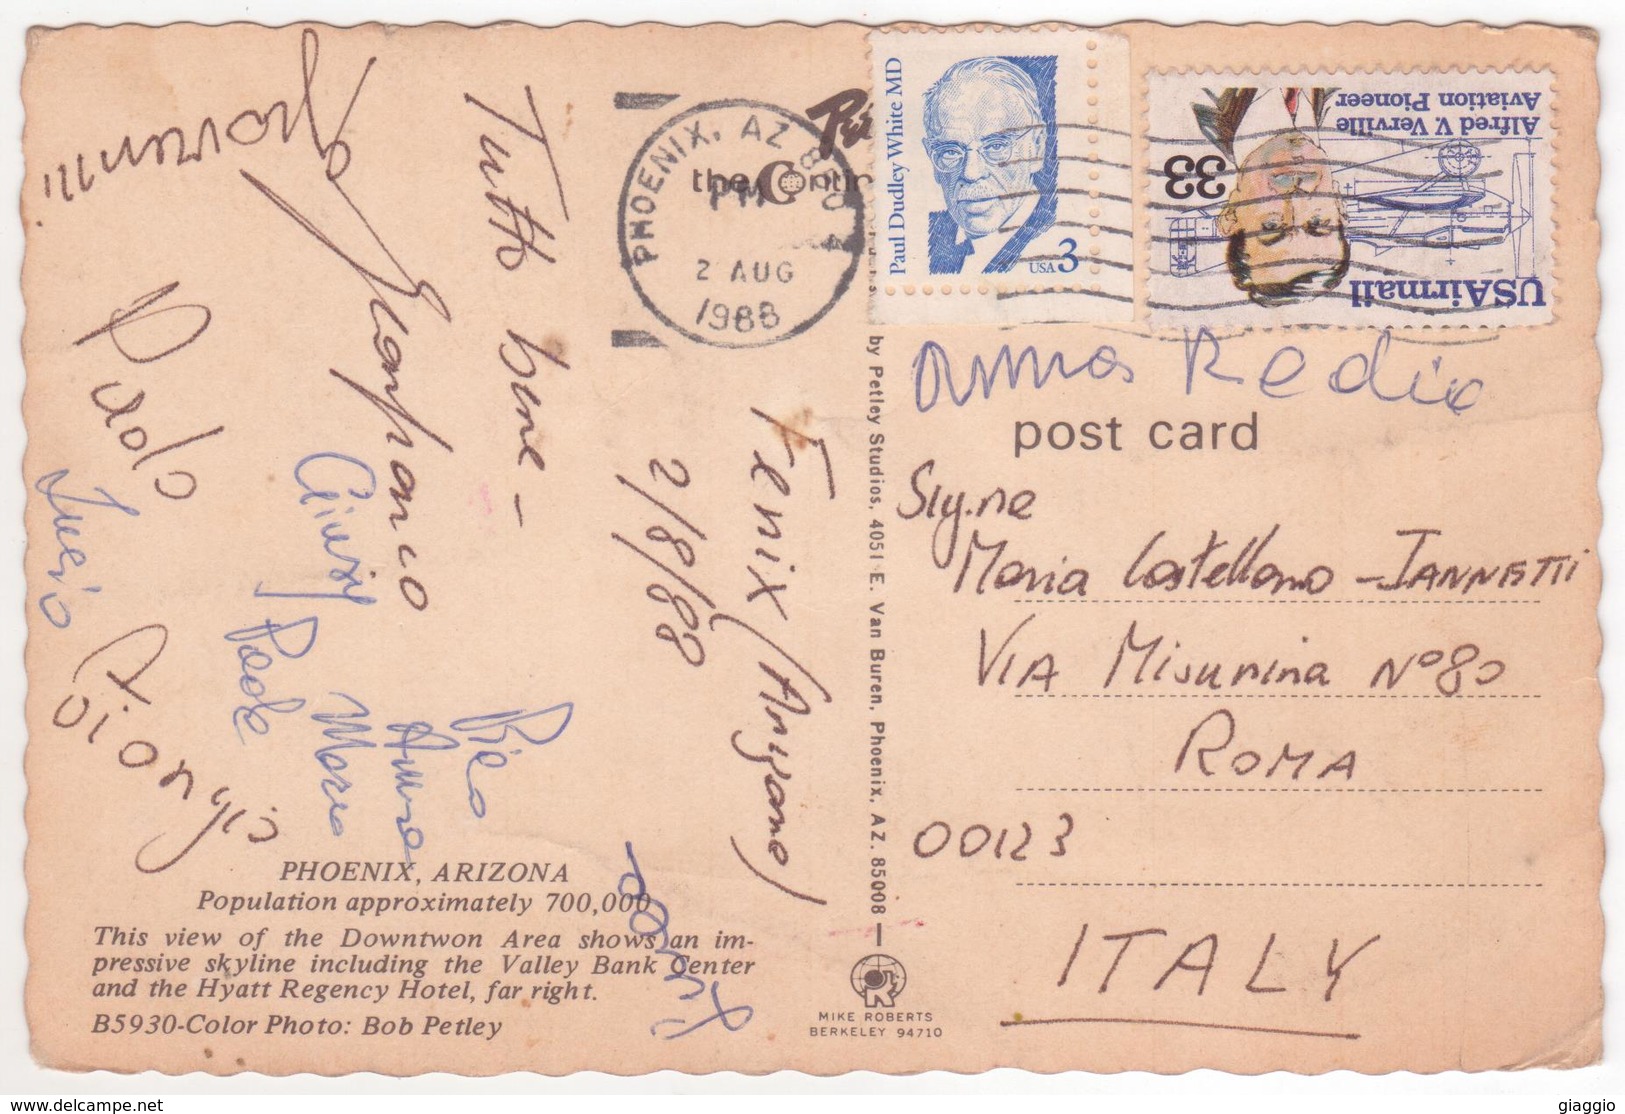 Paul Dudley White MD
USA 3
USAirmail
33
Alfred V. Verville
Aviation Pioneer
PHOENIX, AZ
PM
2 AUG
1988
the Contin
Fenix (Arizona)
2/8/88
Tutto bene -
Giampanco
Giovanni
Paolo
Lucio
Giusy
Paola
Mara
Anna
Piero
Dionigio
anna Redix
post card
Sig.ne
Maria Castellano - IANNETTI
VIA Misurina N° 80
ROMA
00123
ITALY
by Petley Studios, 4051 E. Van Buren, Phoenix, AZ. 85008 —
MIKE ROBERTS
BERKELEY 94710
PHOENIX, ARIZONA
Population approximately 700,000
This view of the Downtwon Area shows an im-
pressive skyline including the Valley Bank Center
and the Hyatt Regency Hotel, far right.
B5930-Color Photo: Bob Petley
www.delcampe.net
giaggio